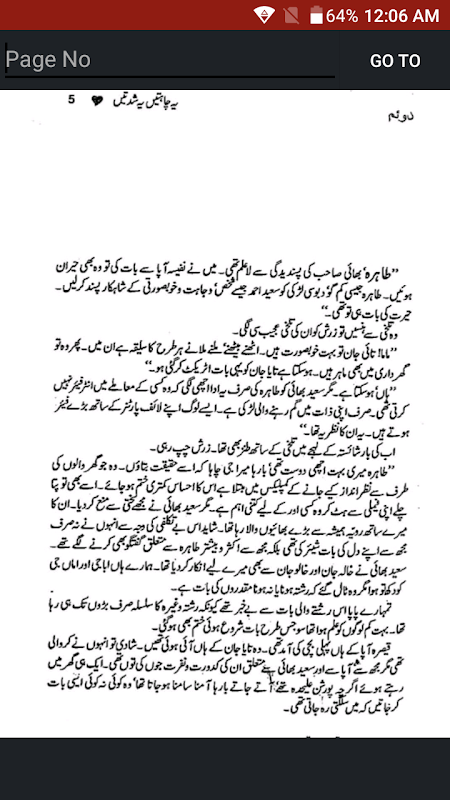 64% 12:06 AM
Page No
GO TO
یہ چاہتیں یہ شدتیں 5
دوئم
”طاہرہ‘ بھائی صاحب کی پسندیدگی سے لاعلم تھی۔ میں نے نفیسہ آپا سے بات کی تو وہ بھی حیران
ہوئیں۔ طاہرہ جیسی کم گو‘ دبوسی لڑکی کو سعید احمد جیسے شخص‘ وجاہت وخوبصورتی کے شاہکار پسند کرلیں۔
حیرت کی بات ہی تو تھی۔“
وہ تلخی سے ہنسیں تو زرش کو ان کی تلخی عجیب سی لگی۔
”ماما! تائی جان تو بہت خوبصورت ہیں۔ اٹھنے بیٹھنے‘ ملنے ملانے ہر طرح کا سلیقہ ہے ان میں۔ پھر وہ تو
گھر داری میں بھی ماہر ہیں۔ ہوسکتا ہے تایا جان کو یہی بات اٹریکٹ کر گئی ہو۔“
”ہاں‘ ہوسکتا ہے۔ مگر سعید بھائی کو طاہرہ کی صرف یہ ادا اچھی لگی کہ وہ کسی کے معاملے میں انٹرفیئر نہیں
کرتی تھی۔ صرف اپنی ذات میں گم رہنے والی لڑکی ہے۔ ایسے لوگ اپنے لائف پارٹنر کے ساتھ بڑے فیئر
ہوتے ہیں۔ یہ ان کا نظریہ تھا۔“
اب کی بار شائستہ کے لہجے میں تلخی کے ساتھ طنز بھی تھا۔ زرش چپ رہی۔
”طاہرہ میری بہت اچھی دوست تھی‘ بارہا میرا جی چاہا کہ اسے حقیقت بتاؤں۔ وہ جو گھر والوں کی
طرف سے نظر انداز کیے جانے کے کمپلیکس میں مبتلا ہے اس کا احساس کمتری ختم ہوجائے۔ اسے بھی تو پتا
چلے اپنی فیملی سے ہٹ کر وہ کسی اور کے لیے کتنی اہم ہے۔ مگر سعید بھائی نے مجھے سختی سے منع کردیا۔ ان کا
میرے ساتھ رویہ ہمیشہ سے بڑے بھائیوں والا رہا تھا۔ شاید اس بے تکلفی کی وجہ سے انہوں نے نہ صرف
مجھ سے اپنے دل کی بات شیئر کی تھی بلکہ مجھ سے اکثر وبیشتر طاہرہ سے متعلق گفتگو بھی کرنے لگے تھے۔
سعید بھائی نے خالہ جان اور خالو جان سے بھی میرے لیے انکار کردیا تھا۔ ہمارے ہاں ابا جی اور اماں جی
کو دکھ تو ہوا مگر وہ ٹال گئے کہ رشتہ ہونا یا نہ ہونا مقدروں کی بات ہے۔
تمہارے پاپا اس رشتے والی بات سے بے خبر تھے کیونکہ رشتہ وغیرہ کا سلسلہ صرف بڑوں تک ہی رہا
تھا۔ بہت کم لوگوں کو علم ہوا تھا سو جس طرح بات شروع ہوئی ختم بھی ہوگئی۔
قیصرہ آپا کے ہاں پہلی بچی کی آمد تھی۔ وہ تایا جان کے ہاں آئی ہوئی تھیں۔ شادی تو انہوں نے کروالی
تھی مگر مجھ سے‘ آپا سے اور سعید بھائی سے متعلق ان کی کدورت ونفرت جوں کی توں تھی۔ ایک ہی گھر میں
رہتے ہوئے اگرچہ پورشن علیحدہ تھے‘ آتے جاتے بارہا آمنا سامنا ہوجاتا تھا‘ وہ کوئی نہ کوئی ایسی بات
کر جاتیں کہ میں سلگتی رہ جاتی تھی۔